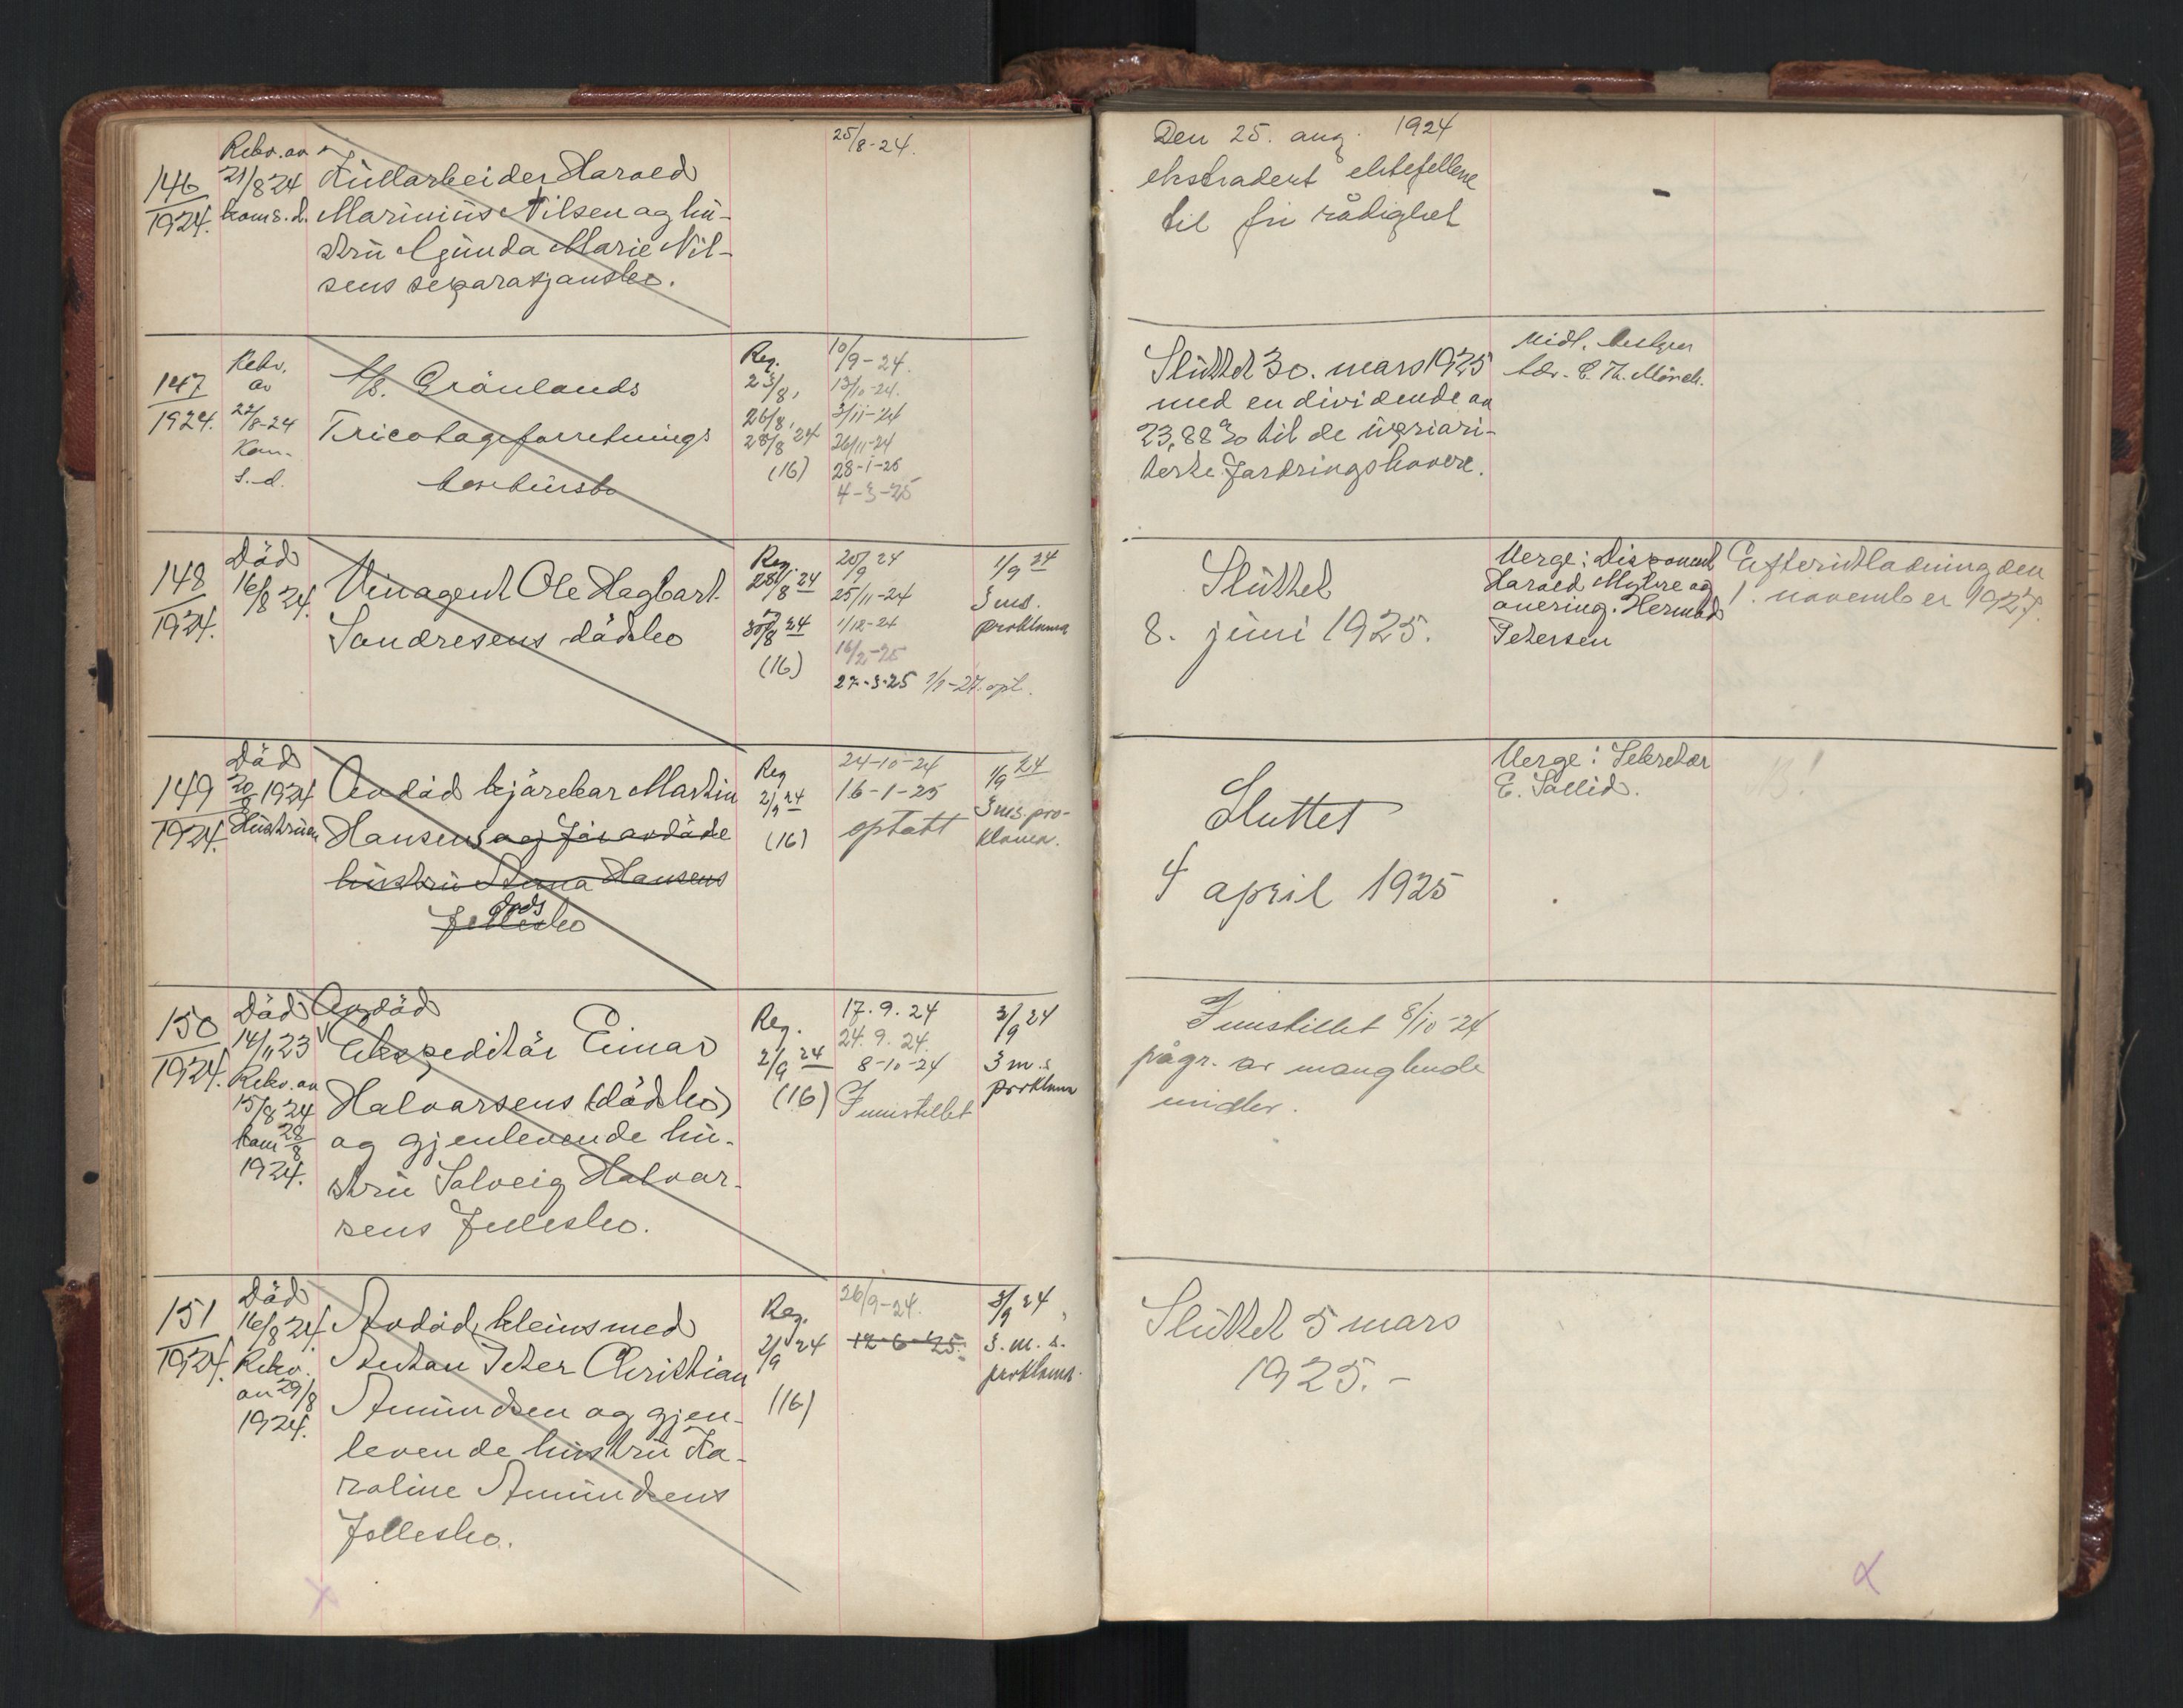 146
1924.
Rekv. av
21/8 24
kom s. d.
Kullarbeider Harald
Marinius Nilsen og hu-
stru Gunda Marie Nil-
sens separasjonsbo.
25/8-24.
Den 25. aug. 1924
ekstradert ektefellene
til fri rådighet
-
147
1924.
Rekv.
av
22/8-24
Kom.
s. d.
A/S. Grönlands
Tricotageforretnings
konkursbo
Reg.
23/8,
26/8,
28/8 24
(16)
10/9-24.
13/10-24.
3/11-24
26/11-24
28-1-25
4-3-25
Sluttet 30. mars 1925
med en dividende av
23,88% til de upriori-
terte fordringshavere.
Midl. bestyrer
adv. C. Th. Mönch.
148
1924.
Död
16/8 24.
Vinagent Ole Hagbart
Sandresens dödsbo
Reg.
28/8 24
30/8 24
(16)
20/9 24
25/11-24
1/12-24
16/2-25
27-3-25 1/1-27. opt.
1/9 24
3 ms.
proklama
Sluttet
8. juni 1925.
Verge: Disponent
Harald Myhre og
overing. Hermod
Petersen
Efterutlodning den
1. november 1927.
149
1924.
Död
20/8 1924
Hustruen
Avdöd kjörekar Martin
Hansens og för avdöde
hustru Anna Hansens
döds
fellesbo
Reg
2/9 24
(16)
24-10-24
16-1-25
optatt
1/9 24
3 ms. pro-
klama.
Sluttet
4 april 1925
Verge: Sekretær
E. Sollid.
150
1924.
Död
14/11 23
Rekv. av
15/8 24
kom 28/8
1924.
Avdöd
Ekspeditör Einar
Halvorsens (dödsbo)
og gjenlevende hu-
stru Solveig Halvor-
sens fellesbo.
Reg.
2/9 24
(16)
17. 9. 24
24. 9. 24.
8-10-24
Innstillet
3/9 24
3 m. s
proklama
Innstillet 8/10-24
pågr. av manglende
midler.
151
1924.
Död
16/8 24.
Rekv.
av 29/8
1924.
Avdöd kleinsmed
Anton Peter Christian
Amundsen og gjen-
levende hustru Ka-
roline Amundsens
fellesbo.
Reg.
2/9 24
(16)
26/9-24.
12-6-25.
3/9 24
3. m. s.
proklama.
Sluttet 5 mars
1925.-